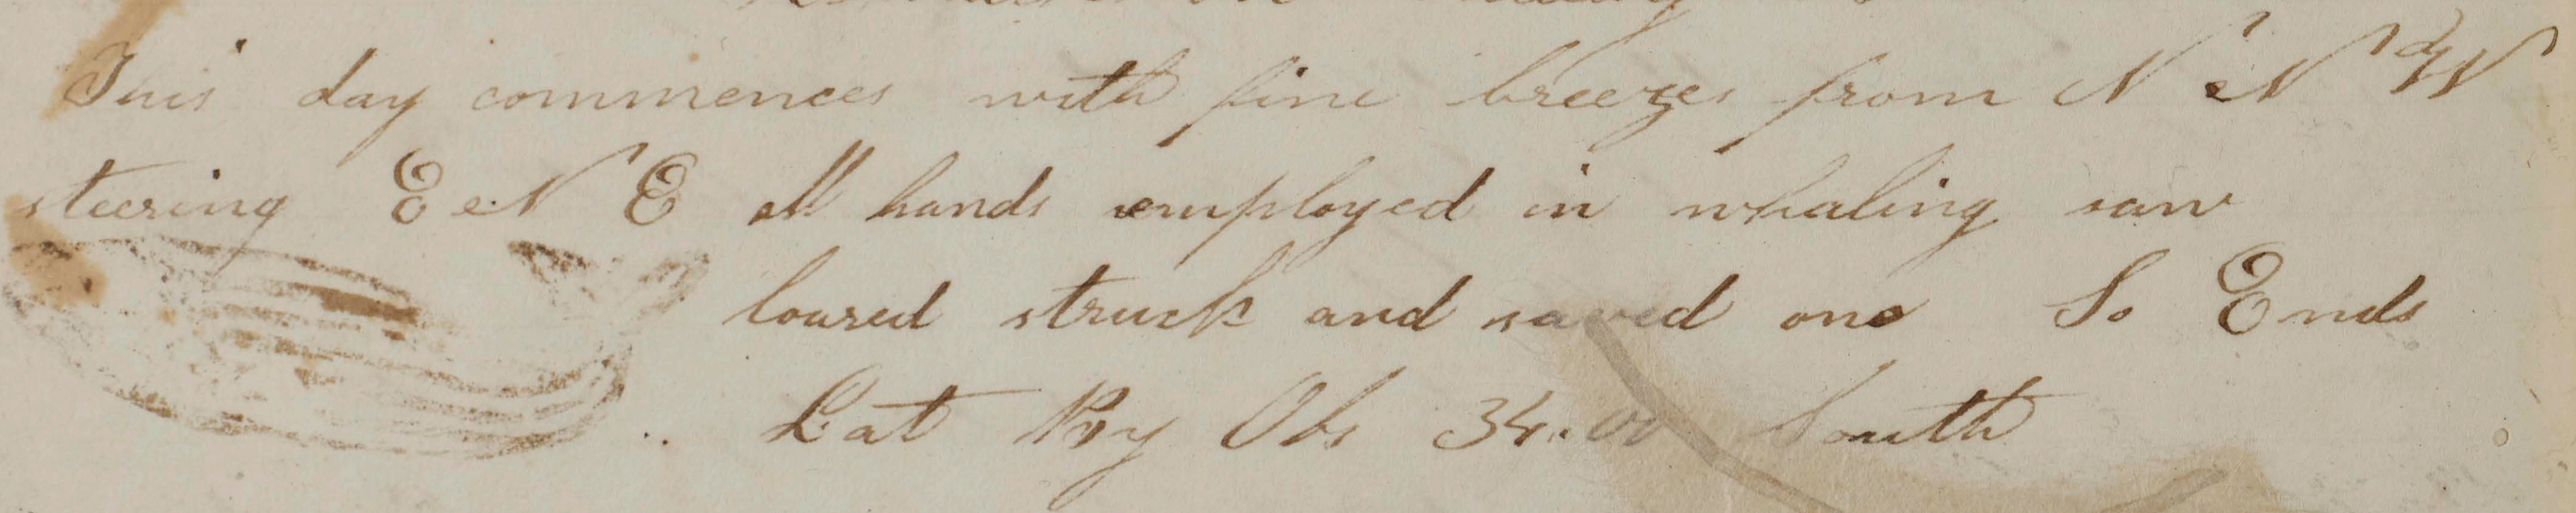 This day commences with fine breezes from N N W
steering E N E all hands employed in whaling saw
loured struck and saved one So Ends
Lat By Obs 34.00 South